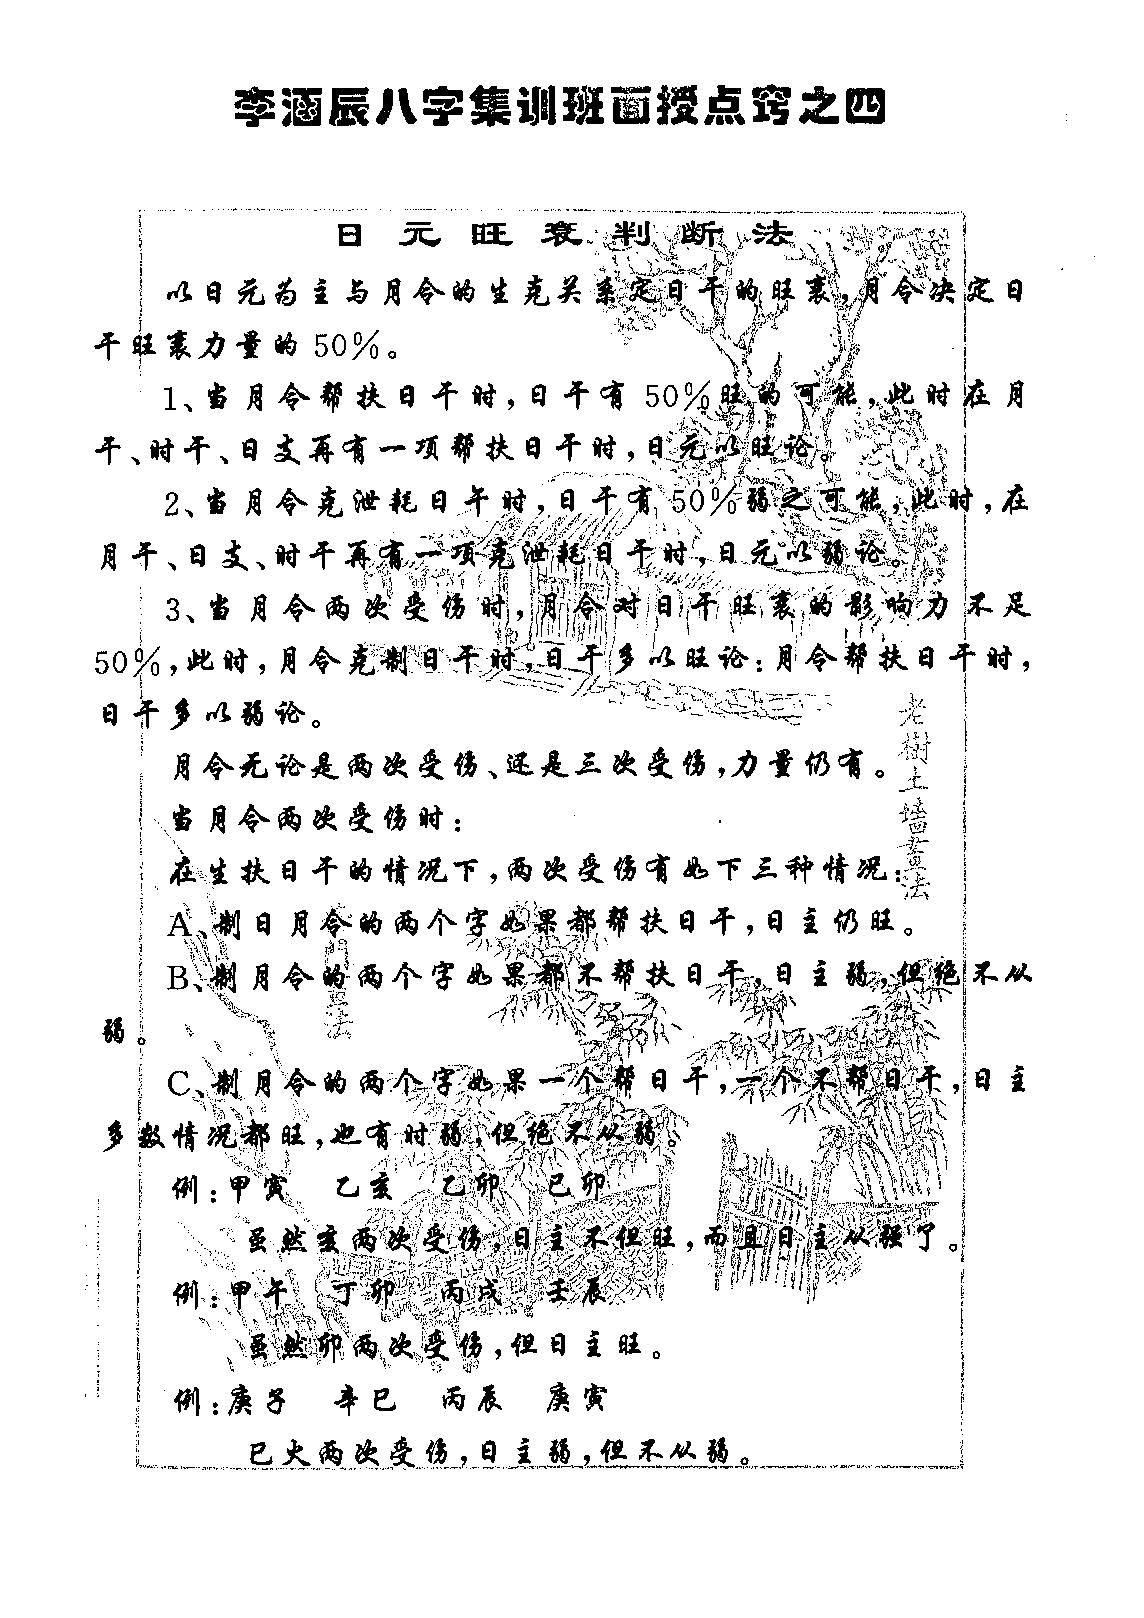 李涵辰八字集训班面授点窍之四
日元旺衰判断法
以日元为主与月令的生克关系定日干的旺衰,月令决定日
干旺衰力量的50%。
1、当月令帮扶日干时,日干有50%旺的可能,此时在月
干、时干、日支再有一项帮扶日干时,日元以旺论。
2、当月令克泄耗日午时,日干有50%弱之可能,此时,在
月干、日支、时干再有一项克泄耗日干时,日元以弱论。
3、当月令两次受伤时,月令对日干旺衰的影响力不足
50%,此时,月令克制日干时,日干多以旺论;月令帮扶日干时,
日干多以弱论。
月令无论是两次受伤、还是三次受伤,力量仍有。
当月令两次受伤时:
在生扶日干的情况下,两次受伤有如下三种情况:
A、制日月令的两个字如果都帮扶日干,日主仍旺。
B、制月令的两个字如果都不帮扶日干,日主弱,但绝不从
弱。
C、制月令的两个字如果一个帮日干,一个不帮日干,日主
多数情况都旺,也有时弱,但绝不从弱。
例:甲寅 乙亥 乙卯 己卯
虽然亥两次受伤,日主不但旺,而且日主从强了。
例:甲午 丁卯 丙戌 壬辰
虽然卯两次受伤,但日主旺。
例:庚子 辛巳 丙辰 庚寅
巳火两次受伤,日主弱,但不从弱。
老樹土墙畫法
門畫法